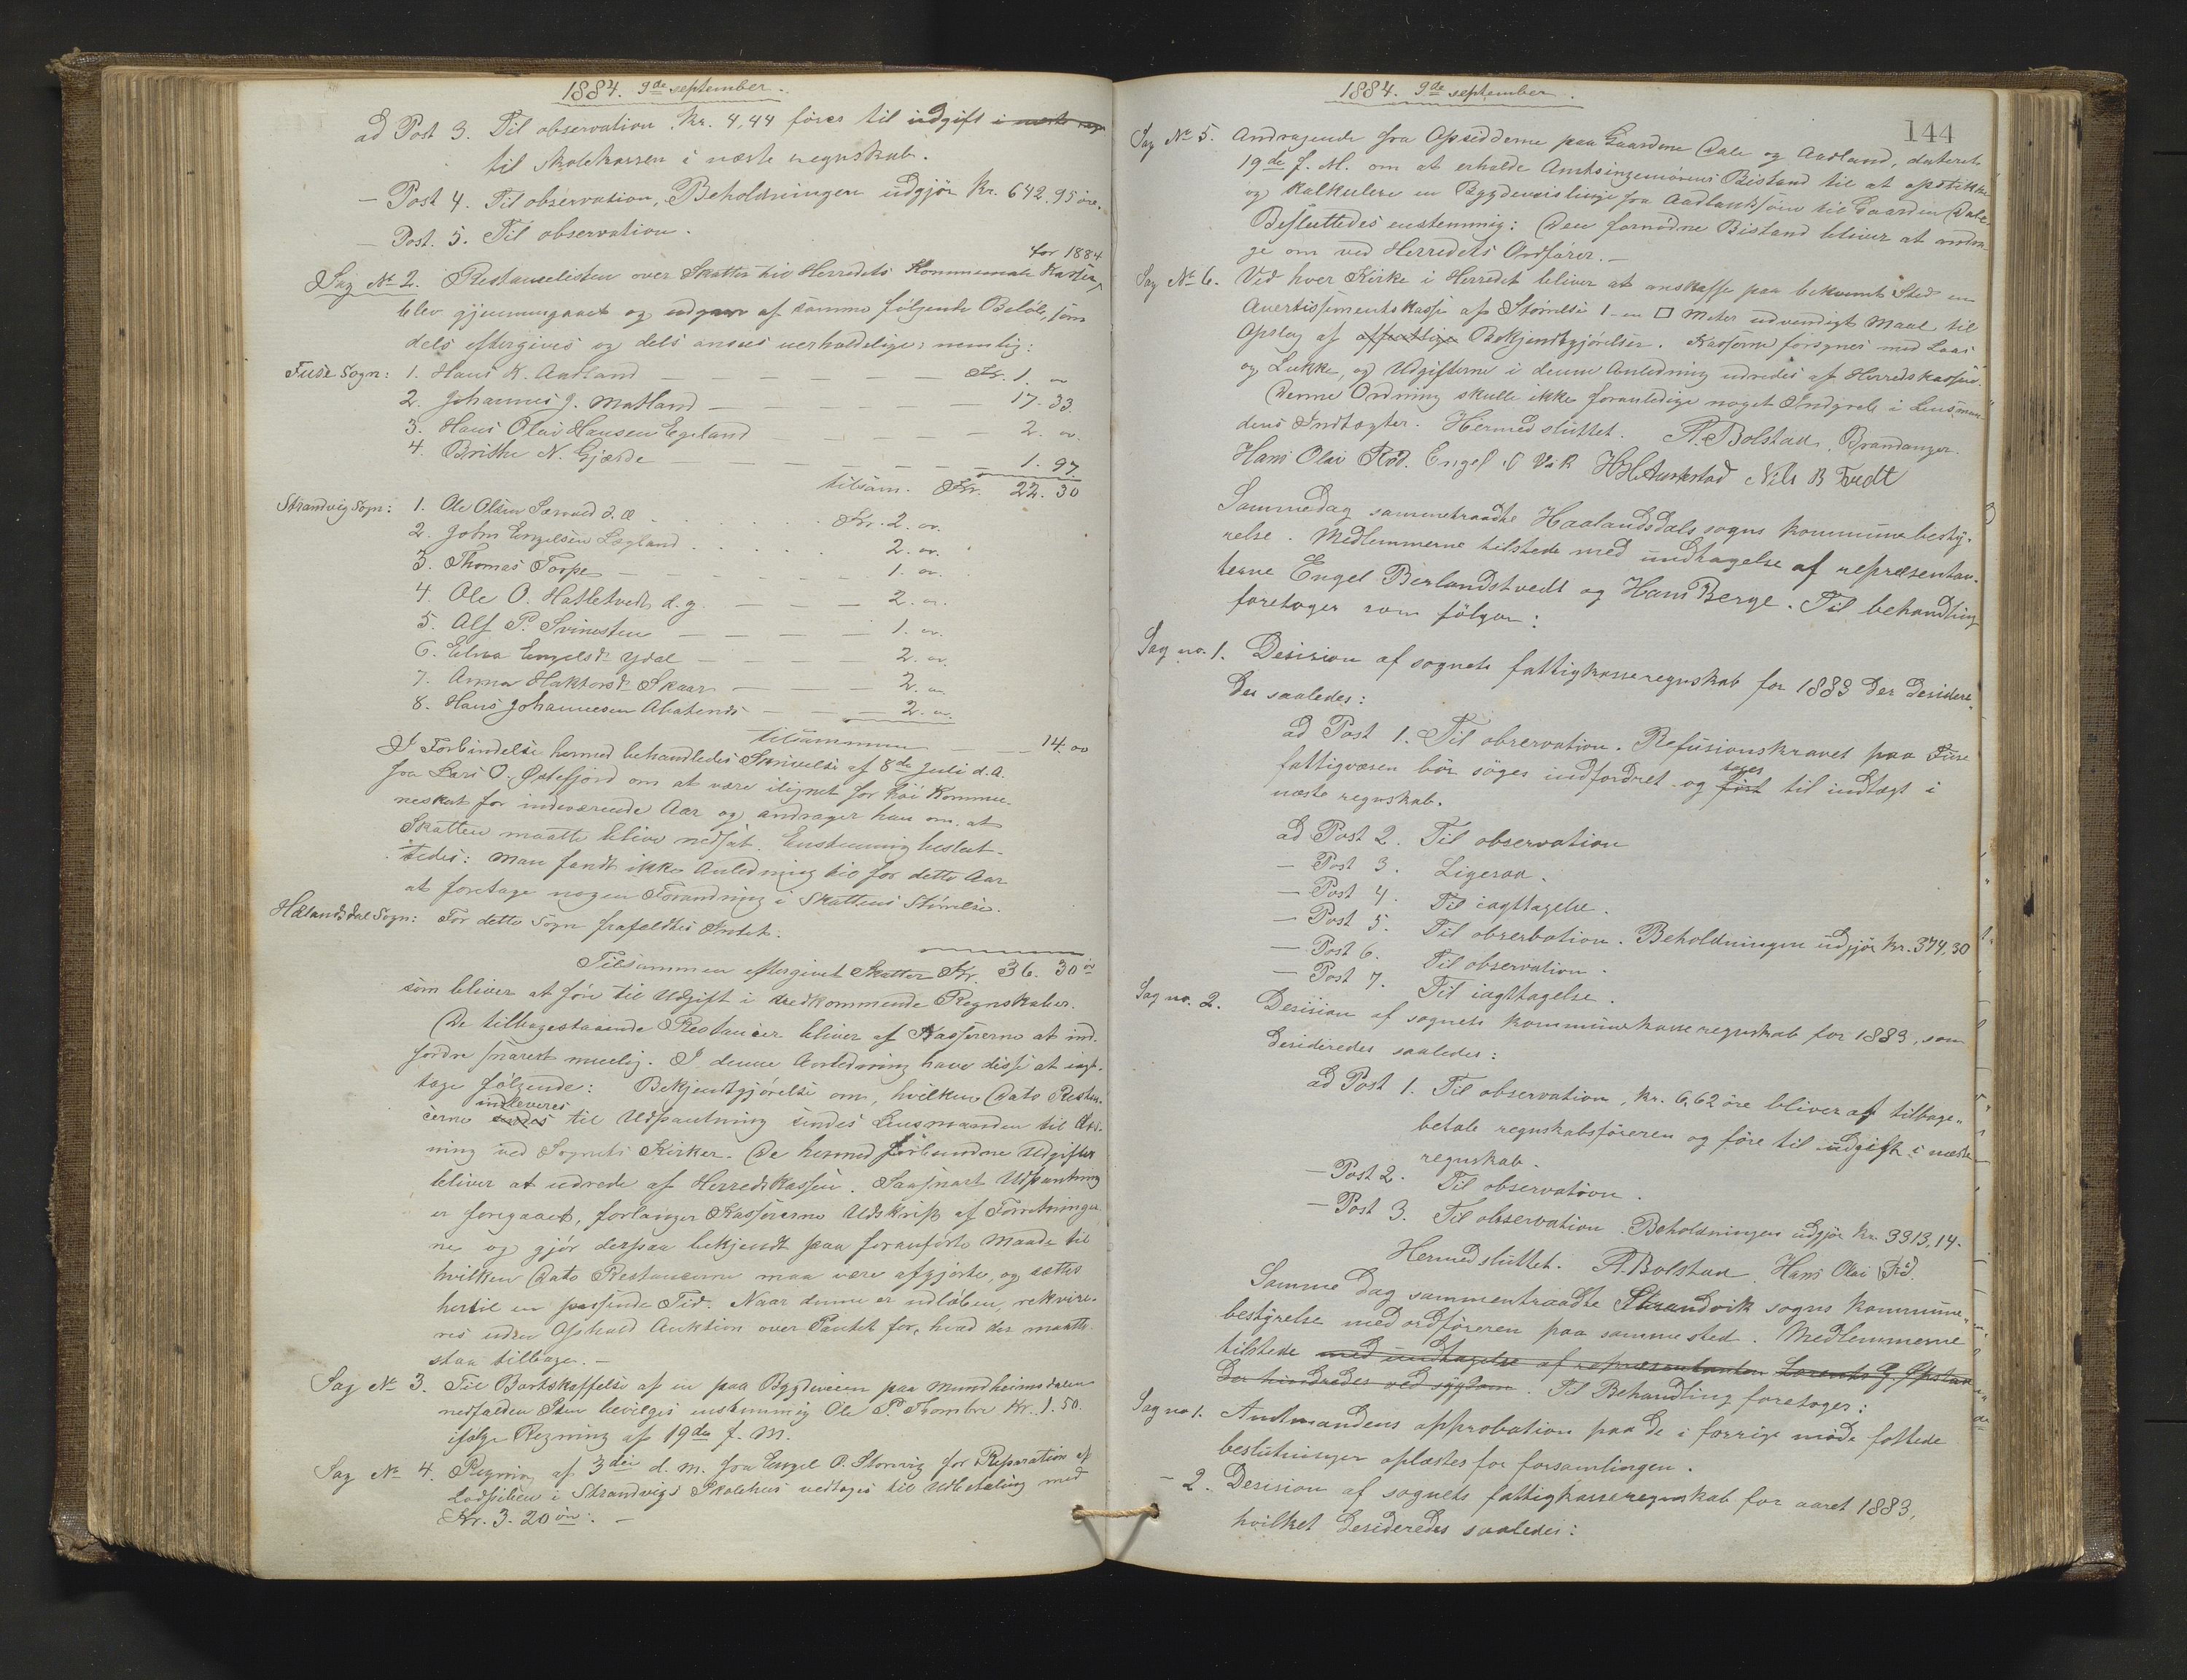 1884. 9de september.
ad Post 3. Til observation. Kr. 4,44 föres til udgift i næste
til skolekassen i næste regnskab.
— Post 4. Til observation, Beholdningen udgjör Kr. 642.95 öre.
— Post. 5. Til observation.
for 1884
Sag No 2. Restancelisten over Skatter til Herredets Kommunale Kasser,
blev gjennemgaaet og udgaar af samme følgende Beløb, som
dels eftergives og dels ansees uerholdelige; nemlig:
Fuse Sogn: 1. Hans K. Aadland — Kr. 1. "
2. Johannes J. Matland — 17.33.
3. Hans Olai Hansen Egeland — 2. "
4. Brithe N. Gjærde — 1.97.
tilsam. Kr. 22.30
Strandvig Sogn: 1. Ole Olsen Særvold d. æ. Kr. 2. "
2. John Engelsen Legland 2. "
3. Thomas Torpe — 1. "
4. Ole O. Hatletvedt d. y. — 2. "
5. Alf P. Svinesteen — 1. "
6. Elna Engelsdr Ydal — 2. "
7. Anna Haktorsdr Skaar — 2. "
8. Hans Johannesen — 2. "
tilsammen — 14.00
I Forbindelse hermed behandledes Skrivelse af 8de Juli d. A.
fra Lars O. Østefjord om at være ilignet for høi Kommu-
neskat for indeværende Aar og andrager han om, at
Skatten maatte blive nedsat. Enstemmig beslut-
tedes: Man fandt ikke Anledning til for dette Aar
at foretage nogen Forandring i Skattens Størrelse.
Hålandsdal Sogn: For dette Sogn frafaldtes Intet.
Tilsammen eftergivet Skatter Kr. 36.30 ör
som bliver at føre til Udgift i vedkommende Regnskaber.
De tilbagestaaende Restancer bliver af Kassererne at ind-
fordre snarest muelig. I denne Anledning have disse at iagt-
tage følgende: Bekjendtgjørelse om, hvilken Dato Restan-
indleveres
cerne sendes til Udpantning sendes Lensmanden til Læs-
ning ved Sognets Kirker. De hermed forbundne Udgifter
bliver at udrede af Herredskassen. Saasnart Udpantning
er foregaaet, forlanger Kassererne Udskrift af Forretninger-
ne og gjør derpaa bekjendt paa foranførte Maade til
hvilken Dato Restancerne maa være afgjorte, og sættes
hertil en passende Tid. Naar denne er udløben, rekvire-
res uden Ophold Auktion over Pantet for, hvad der maatte
staa tilbage. —
Sag No 3. Til Bortskaffelse af en paa Bygdeveien paa Mundheimsdalen
nedfalden Sten bevilges enstemmig Ole P. Tombre Kr. 1.50.
ifølge Regning af 19de f. M.
Sag No 4. Regning af 3die d. M. fra Engel O. Storvig for Reparation af
i Strandvigs Skolehus vedtages til Udbetaling med
Kr. 3.20 ör. —
1884. 9de september.
144
Sag No 5. Andragende fra Opsidderne paa Gaardene Dale og Aadland, dateret
19de f. M. om at erholde Amtsingeniørens Bistand til at opstikke
og kalkulere en Bygdeveislinje fra Aadlandsøen til Gaarden Dale,
Besluttedes enstemmig: Den fornødne Bistand bliver at andra-
ge om ved Herredets Ordfører. —
Sag No 6. Ved hver Kirke i Herredet bliver at anskaffe paa bekvemt Sted en
Avertissementskasse af Størrelse 1-en □ Meter udvendigt Maal til
Opslag af offentlige Bekjendtgjørelser. Kasserne forsynes med Laas
og Lukke, og Udgifterne i denne Anledning udredes af Herredskassen.
Denne Ordning skulle ikke foranledige noget Indgreb i Lensman-
dens Indtægter. Hermed sluttet. A. Bolstad. Brandanger.
Hans Olai Rød. Engel O Vik Nils B Tvedt
Sammedag sammentraadte Haalandsdals sogns kommunebesty-
relse. Medlemmerne tilstede med undtagelse af repræsentan-
terne Engel Berlandstvedt og Hans Berge. Til behandling
foretoges som følger:
Sag no. 1. Desision af sognets fattigkasseregnskab for 1883 der desidere-
des saaledes:
ad Post 1. Til observation. Refusionskravet paa Fuse
fattigvæsen bör söges indfordret og fört til indtægt i
tages
næste regnskab.
ad Post 2. Til observation
— Post 3. Ligesaa.
— Post 4. Til iagttagelse.
— Post 5. Til observation. Beholdningen udgjör kr. 374,30
— Post 6. Til observation.
— Post 7. Til iagttagelse.
Sag no. 2. Desision af sognets kommunekasseregnskab for 1883, som
desideredes saaledes:
ad Post 1. Til observation, kr. 6,62 öre bliver at tilbage-
betale regnskabsføreren og føre til udgift i næste
regnskab.
— Post 2. Til observation.
— Post 3. Til observation. Beholdningen udgjör kr. 3313,14.
Hermed sluttet. A. Bolstad. Hans Olai Rød.
Samme dag sammentraadte Strandvik sogns kommune-
bestyrelse med ordføreren paa samme sted. Medlemmerne
tilstede med undtagelse af repræsentanten Lorents G. Opstad
der hindredes ved sygdom. Til Behandling foretoges:
Sag no 1. Amtmandens approbation paa de i forrige møde fattede
beslutninger oplæstes for forsamlingen.
— 2. Desision af sognets fattigkasseregnskab for aaret 1883,
hvilket desideredes saaledes: